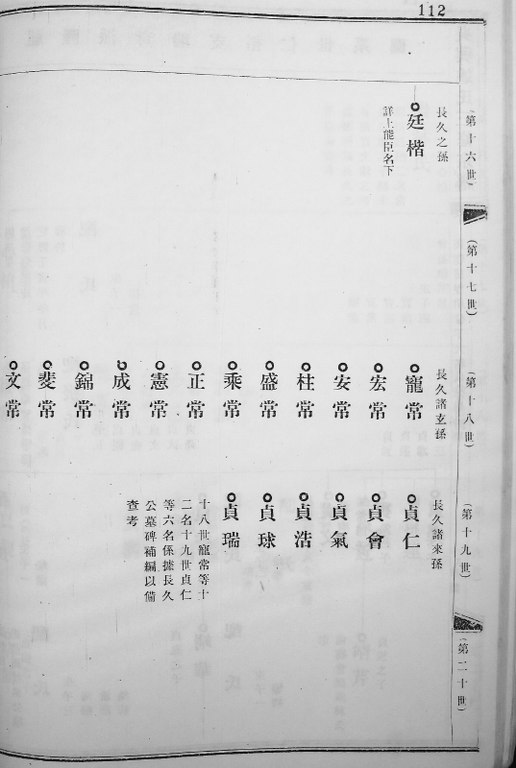 112
(第十六世)
長久之孫
廷楷
詳上龍臣名下
(第十七世)
(第十八世)
長久諸玄孫
寵常
宏常
安常
柱常
盛常
乘常
正常
憲常
成常
錦常
斐常
文常
(第十九世)
長久諸來孫
貞仁
貞會
貞氣
貞浩
貞球
貞瑞
十八世寵常等十
二名十九世貞仁
等六名係據長久
公墓碑補編以備
查考
(第二十世)